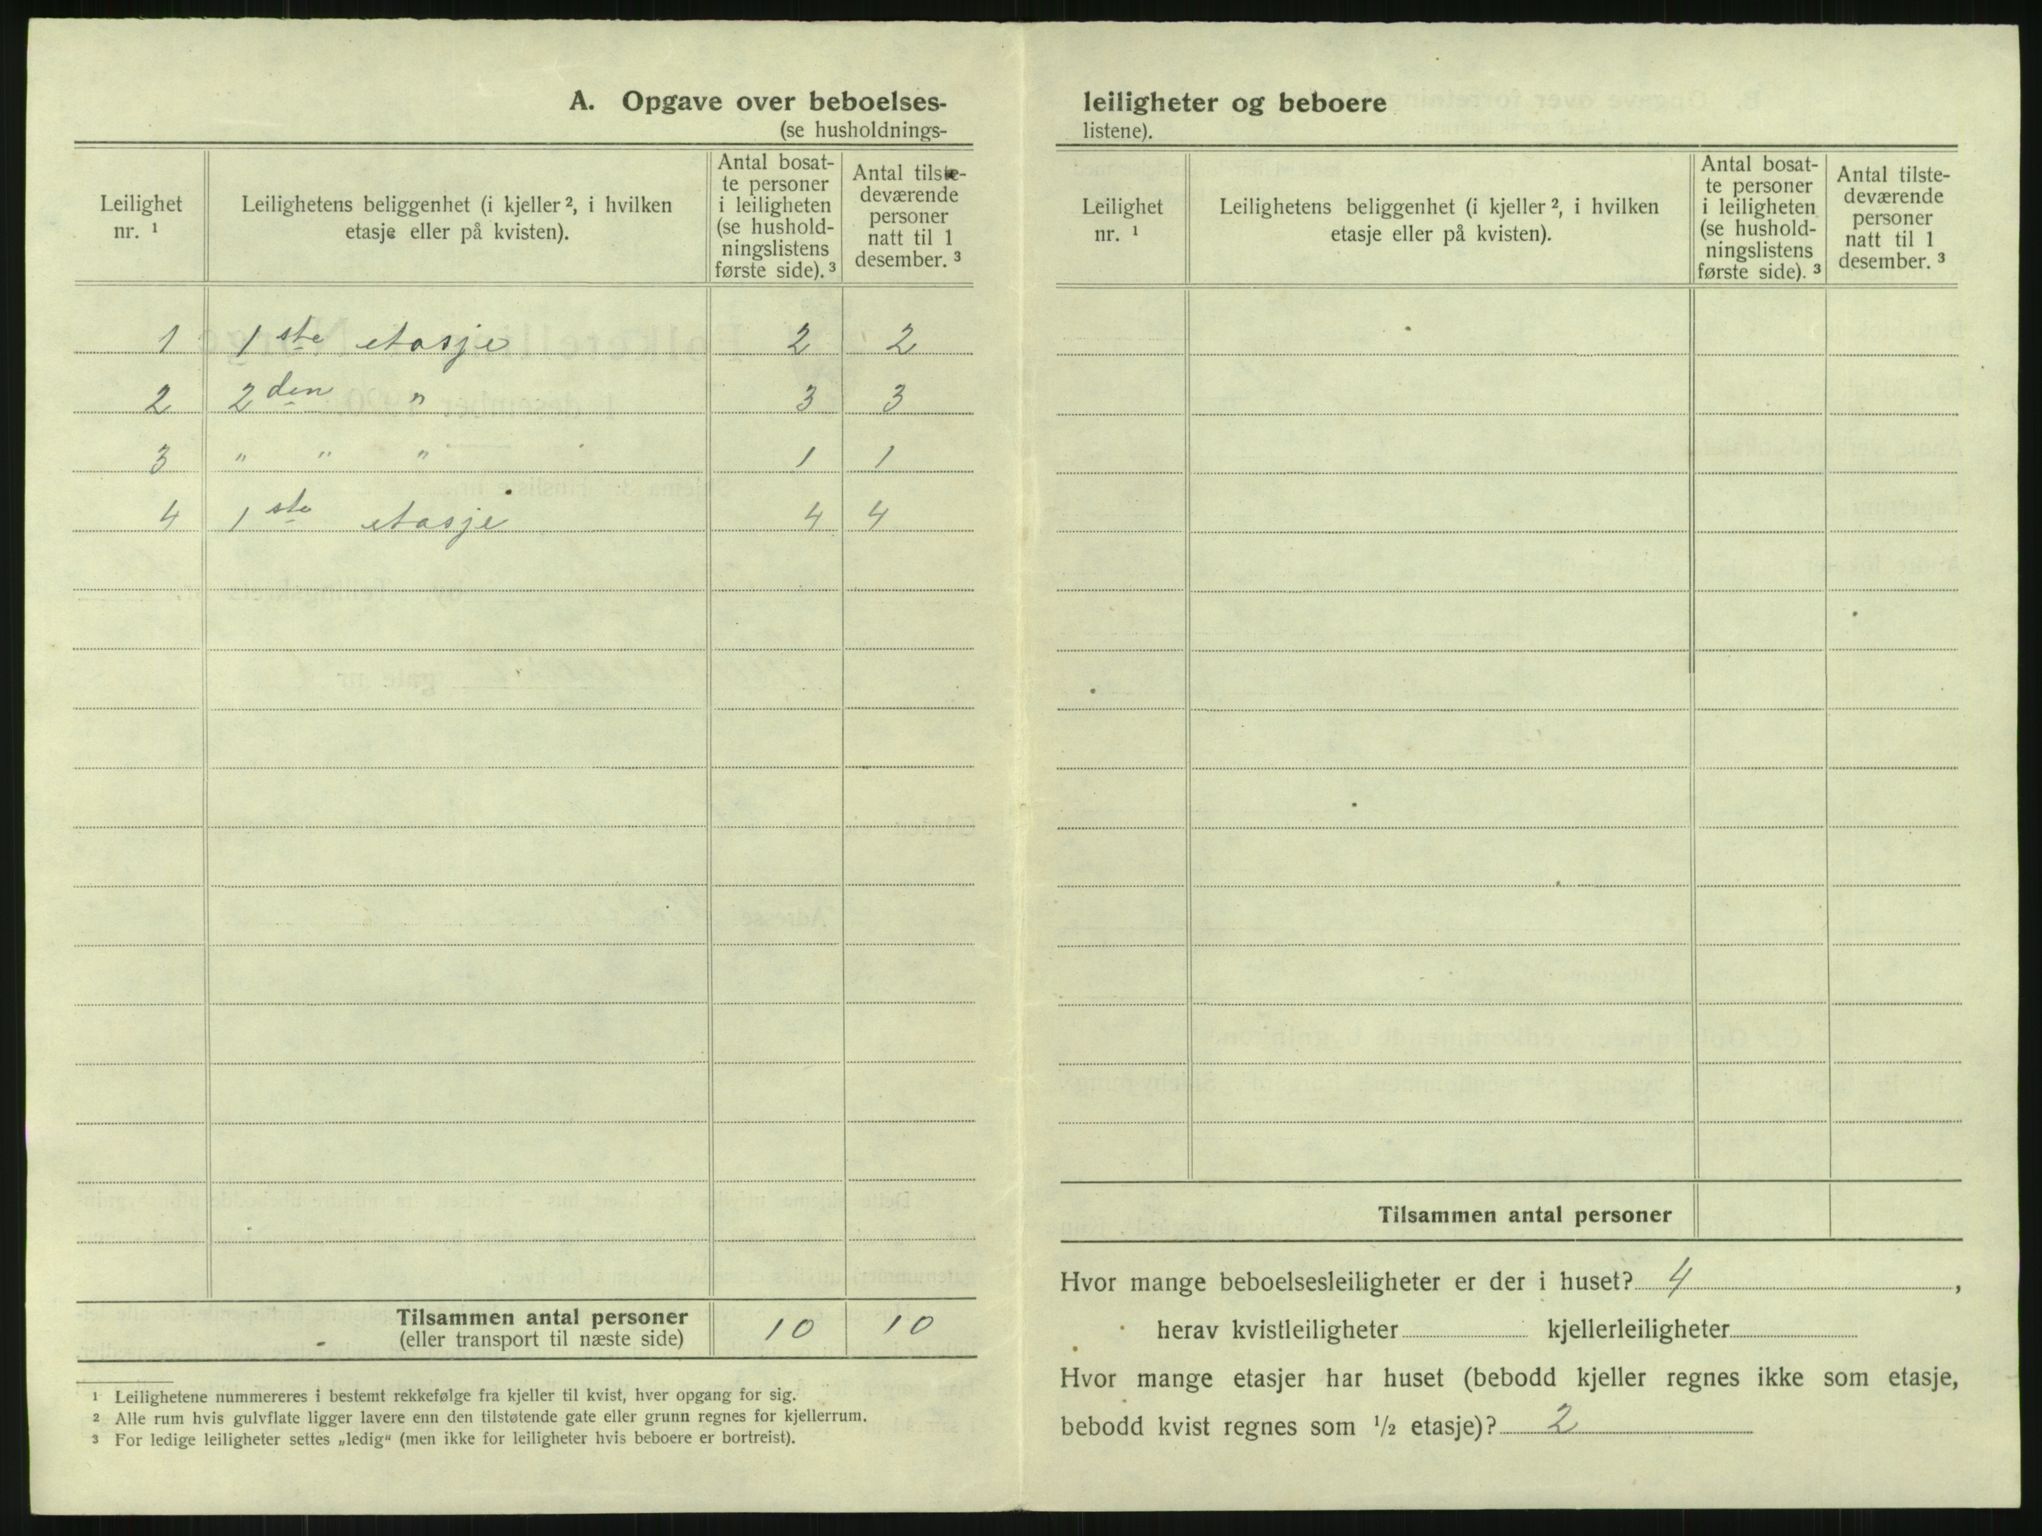 A. Opgave over beboelses-
(se husholdnings-
Leilighet
nr. ¹
Leilighetens beliggenhet (i kjeller ², i hvilken
etasje eller på kvisten).
Antal bosat-
te personer
i leiligheten
(se hushold-
ningslistens
første side). ³
Antal tilste-
deværende
personer
natt til 1
desember. ³
1 1ste etasje 2 2
2 2den " 3 3
3 " " " 1 1
4 1ste etasje 4 4
Tilsammen antal personer
(eller transport til næste side)
10 10
¹ Leilighetene nummereres i bestemt rekkefølge fra kjeller til kvist, hver opgang for sig.
² Alle rum hvis gulvflate ligger lavere enn den tilstøtende gate eller grunn regnes for kjellerrum.
³ For ledige leiligheter settes „ledig“ (men ikke for leiligheter hvis beboere er bortreist).
leiligheter og beboere
listene).
Leilighet
nr. ¹
Leilighetens beliggenhet (i kjeller ², i hvilken
etasje eller på kvisten).
Antal bosat-
te personer
i leiligheten
(se hushold-
ningslistens
første side). ³
Antal tilste-
deværende
personer
natt til 1
desember. ³
Tilsammen antal personer
Hvor mange beboelsesleiligheter er der i huset? 4 ,
herav kvistleiligheter kjellerleiligheter
Hvor mange etasjer har huset (bebodd kjeller regnes ikke som etasje,
bebodd kvist regnes som ½ etasje)? 2